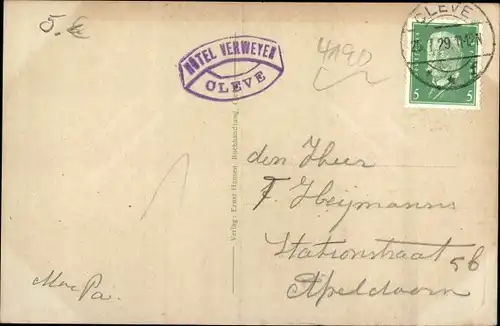 5. c
HOTEL VERWEYEN
CLEVE
4190
CLEVE
25.1.29.11-12V
5 5
Verlag: Ernst Hansen, Buchhandlung,
den Heer
F. Heijmanns
Stationstraat 56
Apeldoorn
Moe Pa.